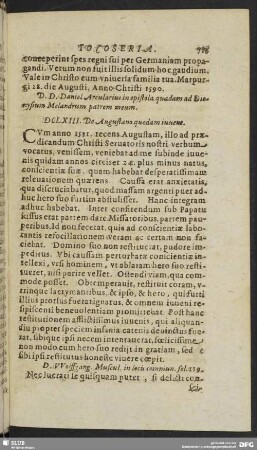 IOCOSERIA.
conceperint spes regni sui per Germaniam propa-
gandi. Verum non fuit illis solidum hoc gaudium.
Vale in Christo cum vniuersa familia tua. Marpur-
gi 28. die Augusti, Anno Christi 1590.
D. D. Daniel Arcularius in epistola quadam ad Dio-
nysium Melandrum patrem meum.
DCLXIII. De Augustano quodam iuuene.
CVm anno 1531. recens Augustam, illo ad præ-
dicandum Christi Seruatoris nostri verbum
vocatus, venissem, veniebat ad me subinde iuue-
nis quidam annos circiter 24. plus minus natus,
conscientiæ suæ, quam habebat desperatissimam
releuationem quærens. Caussa erat anxietatis,
qua discruciabatur, quod aliquando argenti puet ad
huc hero suo furtim abstulisset. Hanc integram
adhuc habebat. Inter consitendum sub Papatu
iussus erat partem dare Missatoribus, partem pau-
peribus. Id non fecerat, quia ad conscientiæ labo-
rantis refocillationem veram ac certam non fa-
ciebat. Domino suo non restituerat, pudore im-
peditus. Vbi caussam perturbatæ conscientiæ in-
tellexi, vrsi hominem, vt ablaram hero suo resti-
tueret, nisi perire vellet. Ostendi viam, qua com-
mode posset. Obtemperauit, restituit coram, v-
trinque lacrymantibus, & ipso, & hero, qui fuerat
illius prorsus fueratignarus, & omnem iuueni re-
sipiscenti beneuolentiam promittebat. Post hanc
restitutionem afflictissimus iuuenis, qui aliquan-
diu propter speciem insaniæ catenis deuinctus fue-
rat, sibique ipsi necem intentauerat, fœlicissime
non modo cum hero suo rediit in gratiam, sed &
sibi ipsi restitutus honeste viuere cœpit.
D. VVolffgang. Muscul. in locis commun. fol. 129.
Nec lucrari se quisquam putet, si delicti con-